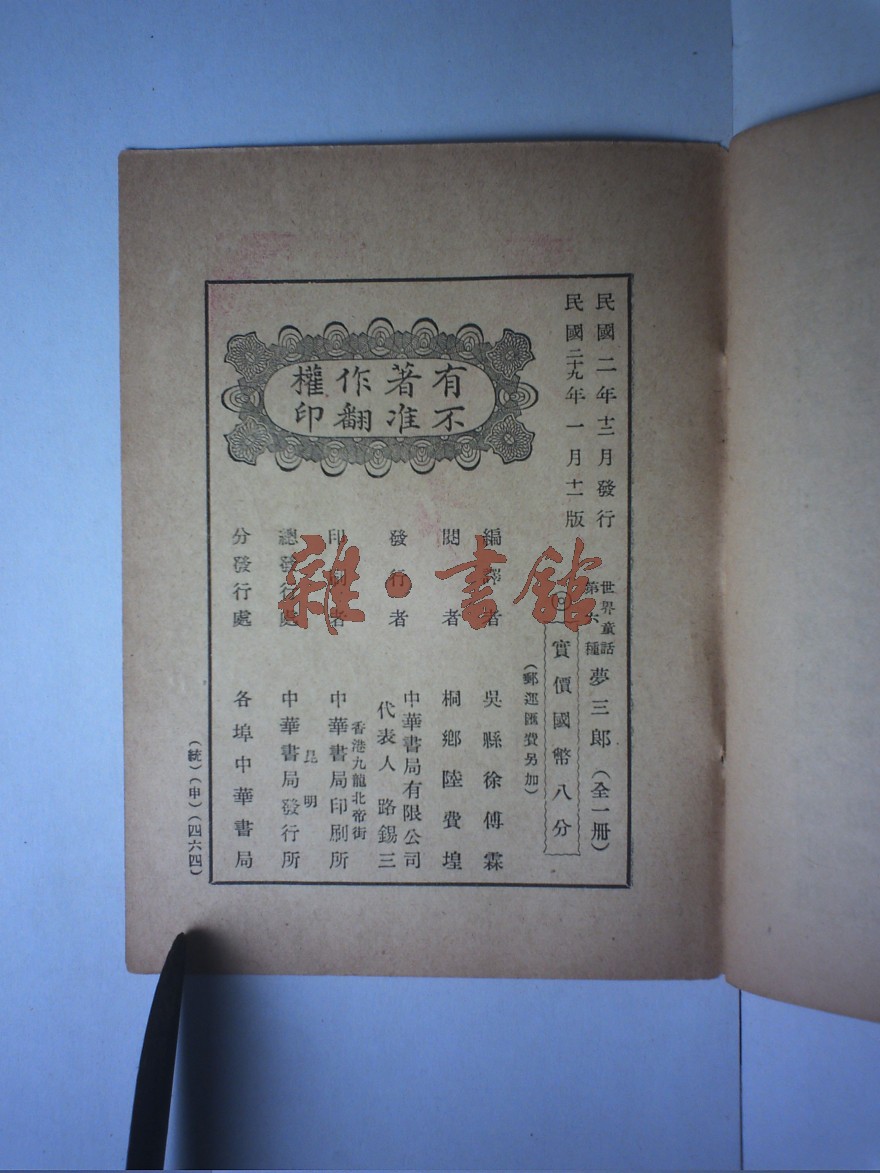 民國二年十二月發行
民國二十九年一月十二版
世界童話
第六種
夢三郎(全一册)
◎實價國幣八分
(郵運匯費另加)
有著作權
不准翻印
編譯者 吳縣徐傅霖
閱者 桐鄉陸費堭
發行者 中華書局有限公司
代表人 路錫三
印刷者 香港九龍北帝街
中華書局印刷所
總發行處 昆明
中華書局發行所
分發行處 各埠中華書局
(統)(申)(四六四)
雜·書館